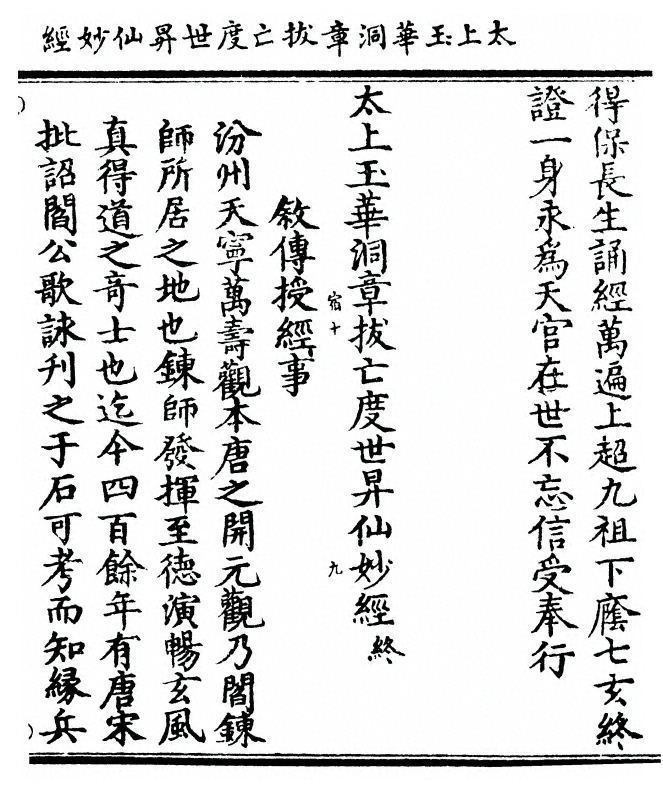 太上玉華洞章拔亡度世昇仙妙經
得保長生誦經萬遍上超九祖下廕七玄終
證一身永為天官在世不忘信受奉行
太上玉華洞章拔亡度世昇仙妙經終
宿十
九
敘傳授經事
汾州天寧萬壽觀本唐之開元觀乃閻鍊
師所居之地也鍊師發揮至德演暢玄風
真得道之奇士也迄今四百餘年有唐宋
批詔閻公歌詠刋之于石可考而知緣兵